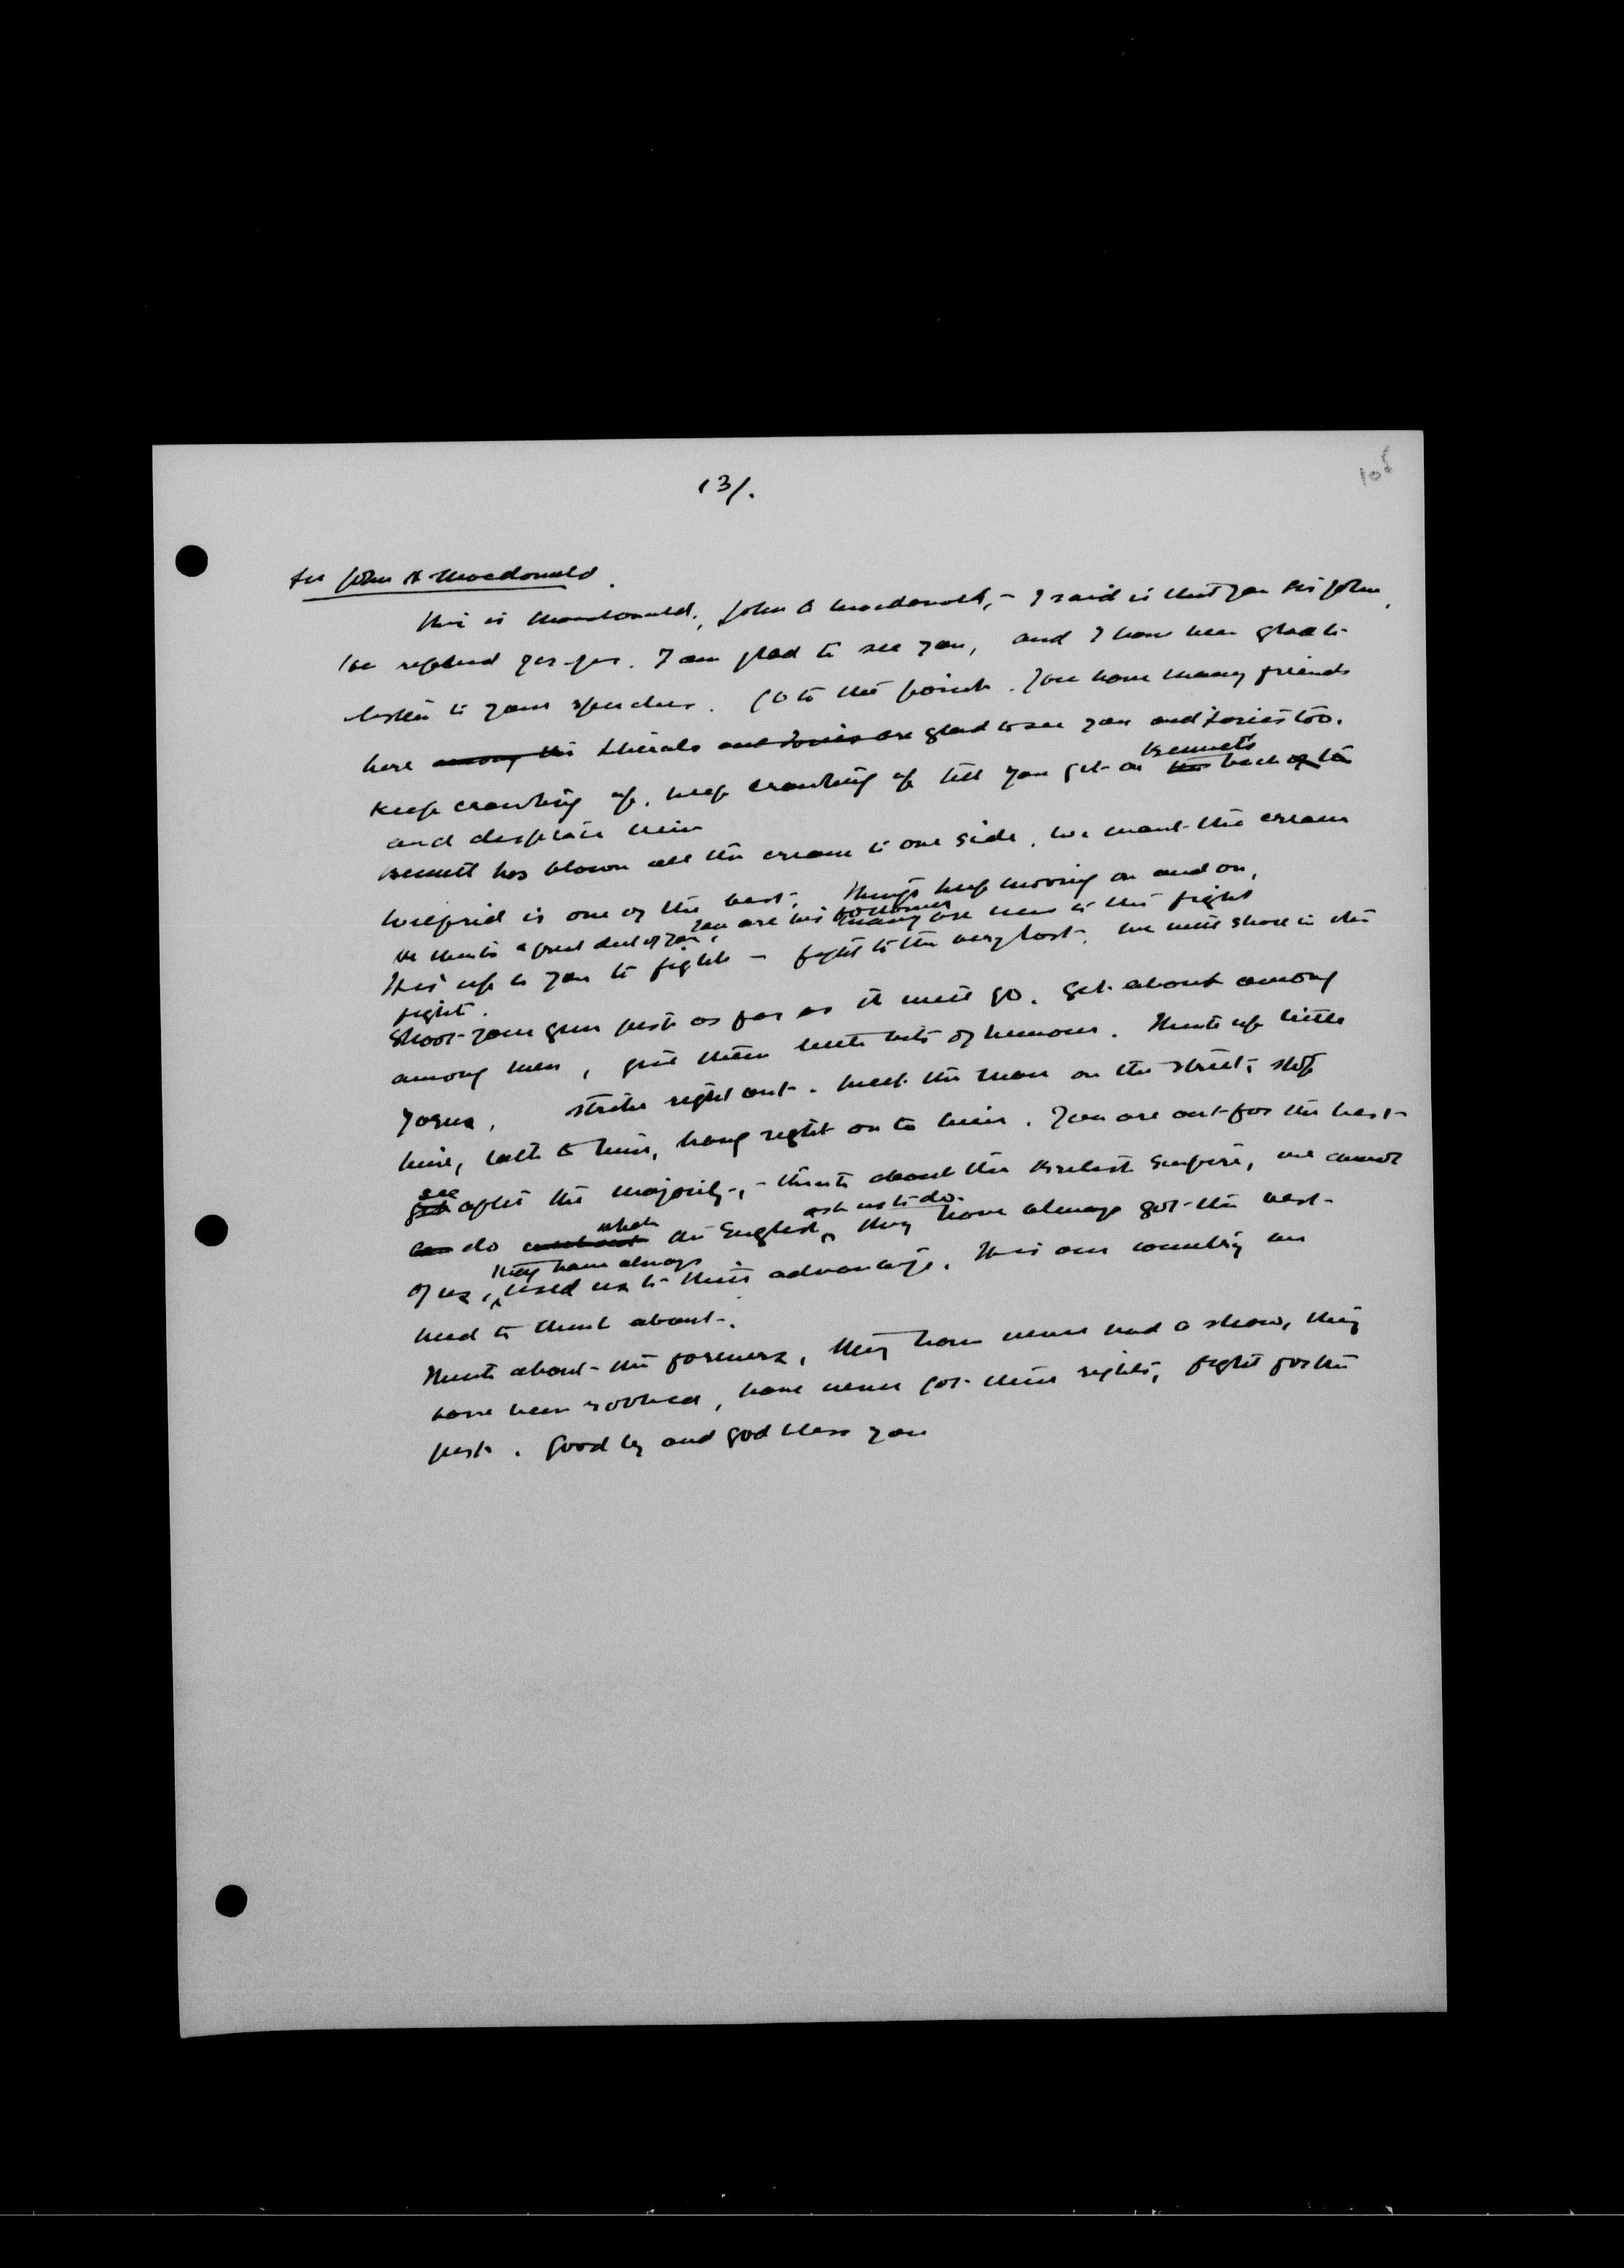 13/.
105
Sir John A Macdonald.
This is Macdonald, John A Macdonald, - I said is that you Sir John,
he replied yes yes. I am glad to see you, and I have been glad to
listen to your speeches. Go to the point. You have many friends
here among the Liberals and Tories are glad to see you and Tories too.
Keep crawling up, keep crawling up till you get on Bennett's the back of the
and displace him
Bennett has blown all the cream to one side, we want the cream
Wilfrid is one of the best, things keep moving on and on,
He thinks a great deal of you, you are his follower many are here in this fight
It is up to you to fight - fight to the very last, we will share in the
fight.
Shoot your gun just as far as it will go. Get about among
among men, give them little bits of humour. Think up little
yarns, strike right out. Meet the man on the street, stop
him, talk to him, hang right on to him. You are out for the best
see get after the majority, - think about the British Empire, we cannot
can do what the English ask us to do, they have always got the best
of us, they have always used us to their advantage. It is our country we
need to think about.
Think about the farmers, they have never had a show, they
have been robbed, have never got their rights, fight for the
just. Good by and God bless you